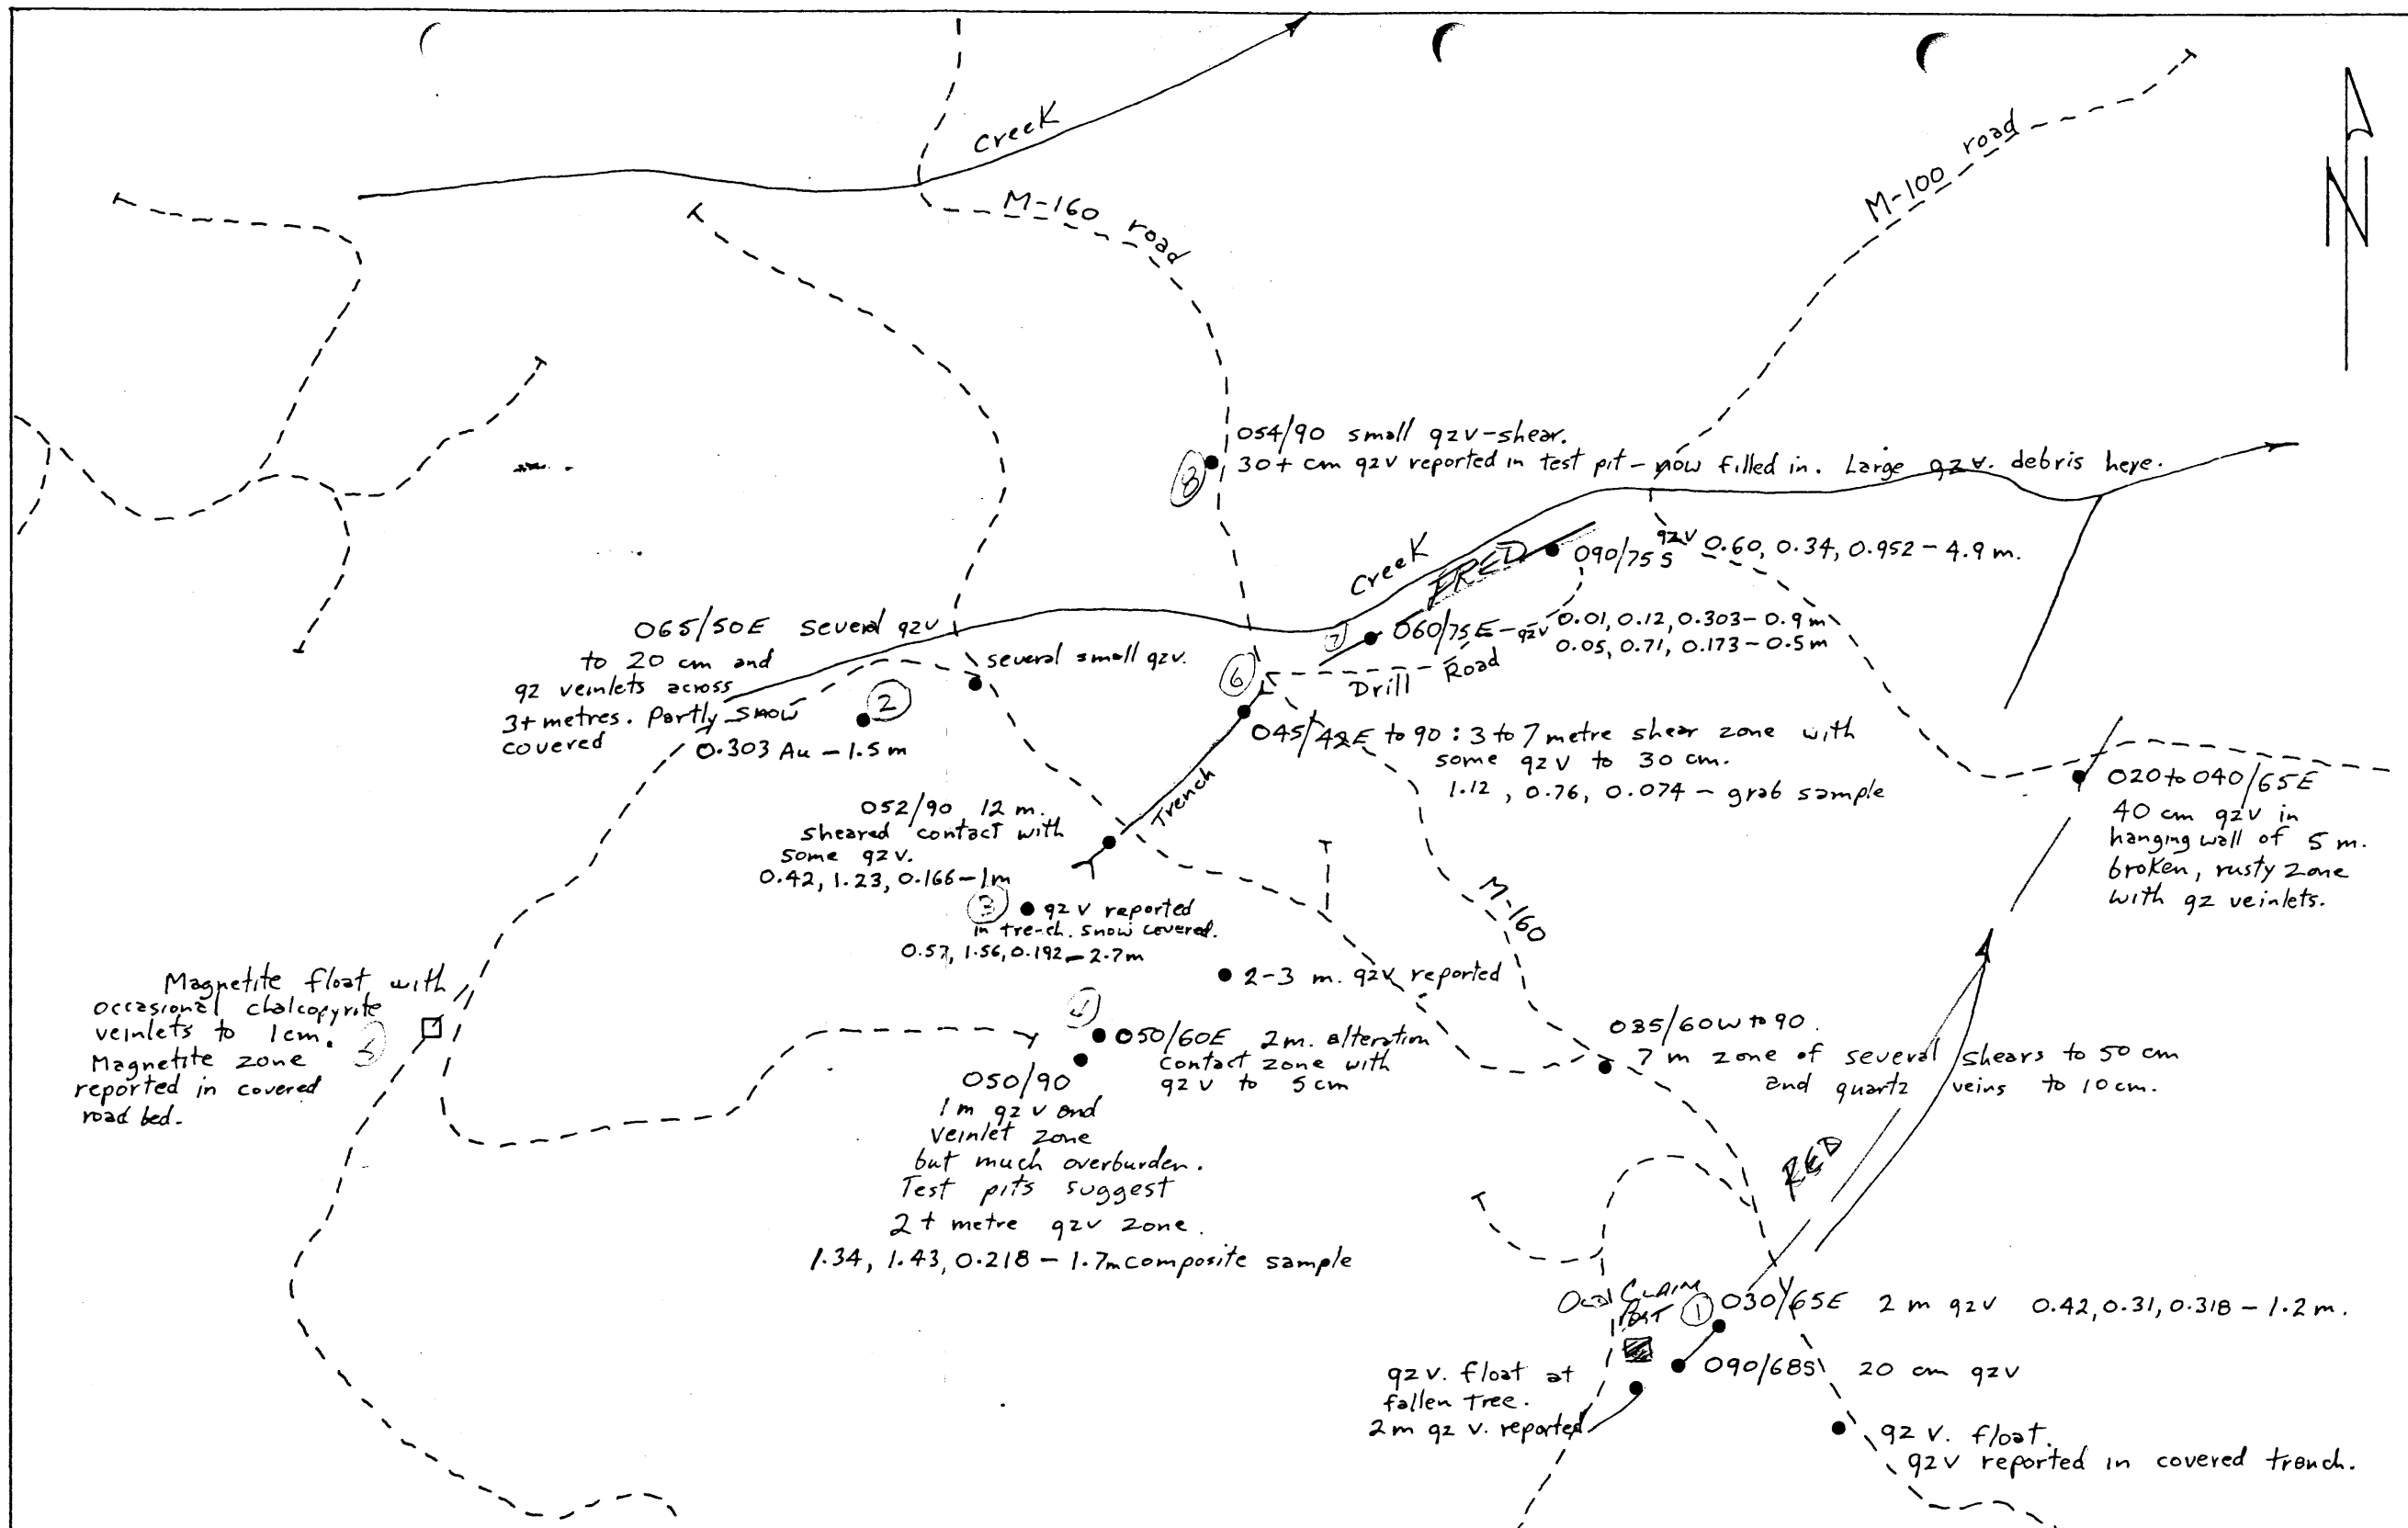 Creek
M-160 road
M-100 road
N
054/90 small qzv-shear.
30+ cm qzv reported in test pit - now filled in. Large qzv. debris here.
8
Creek
FRED
090/75S qzv 0.60, 0.34, 0.952 - 4.9 m.
7
060/75E - qzv 0.01, 0.12, 0.303 - 0.9 m
0.05, 0.71, 0.173 - 0.5 m
Drill Road
6
065/50E several qzv
to 20 cm and
qz veinlets across
3+ metres. Partly snow
covered
2
0.303 Au - 1.5 m
several small qzv.
045/42E to 90 : 3 to 7 metre shear zone with
some qzv to 30 cm.
1.12, 0.76, 0.074 - grab sample
Trench
052/90 12 m.
sheared contact with
some qzv.
0.42, 1.23, 0.166 - 1m
020 to 040/65E
40 cm qzv in
hanging wall of 5 m.
broken, rusty zone
with qz veinlets.
3
qzv reported
in trench. snow covered.
0.57, 1.56, 0.192 - 2.7m
M-160
2-3 m. qzv reported
Magnetite float with
occasional chalcopyrite
veinlets to 1cm.
Magnetite zone
reported in covered
road bed.
5
4
050/60E 2m. alteration
contact zone with
qzv to 5 cm
050/90
1m qzv and
veinlet zone
but much overburden.
Test pits suggest
2+ metre qzv zone.
1.34, 1.43, 0.218 - 1.7m composite sample
035/60W to 90.
7 m zone of several shears to 50 cm
and quartz veins to 10 cm.
RED
CLAIM
POST
1
030/65E 2 m qzv 0.42, 0.31, 0.318 - 1.2 m.
090/68S 20 cm qzv
qzv. float at
fallen tree.
2m qz v. reported
qz v. float.
qzv reported in covered trench.